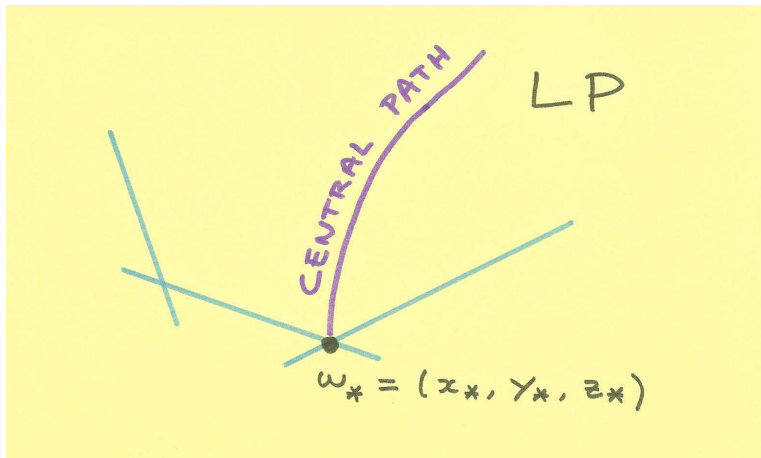 CENTRAL PATH
LP
w* = (x*, y*, z*)